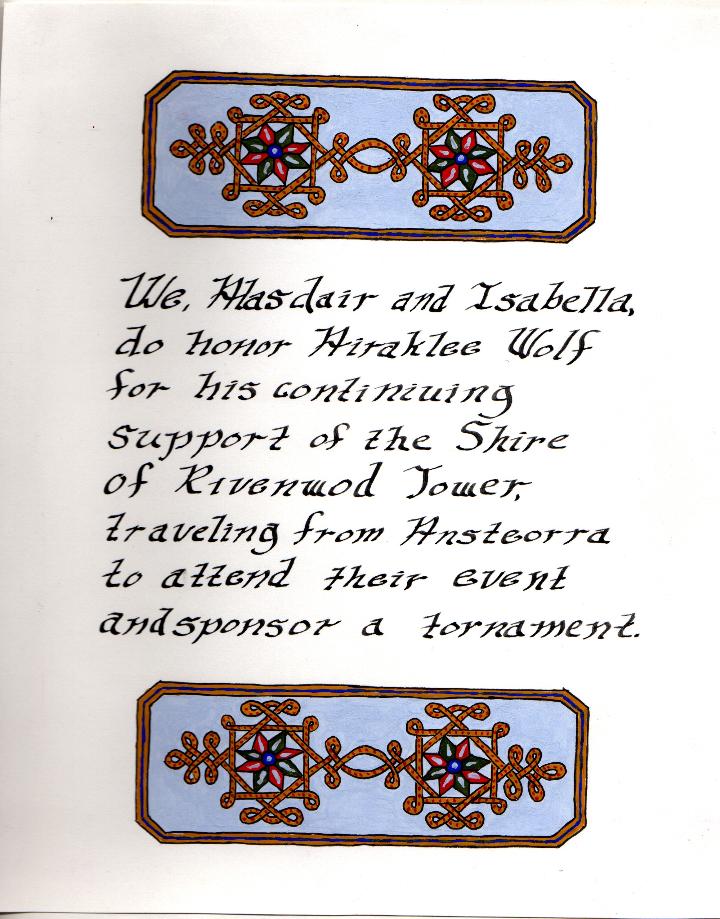 We, Alasdair and Isabella,
do honor Hiraklee Wolf
for his continuing
support of the Shire
of Rivenwod Tower,
traveling from Ansteorra
to attend their event
and sponsor a tornament.